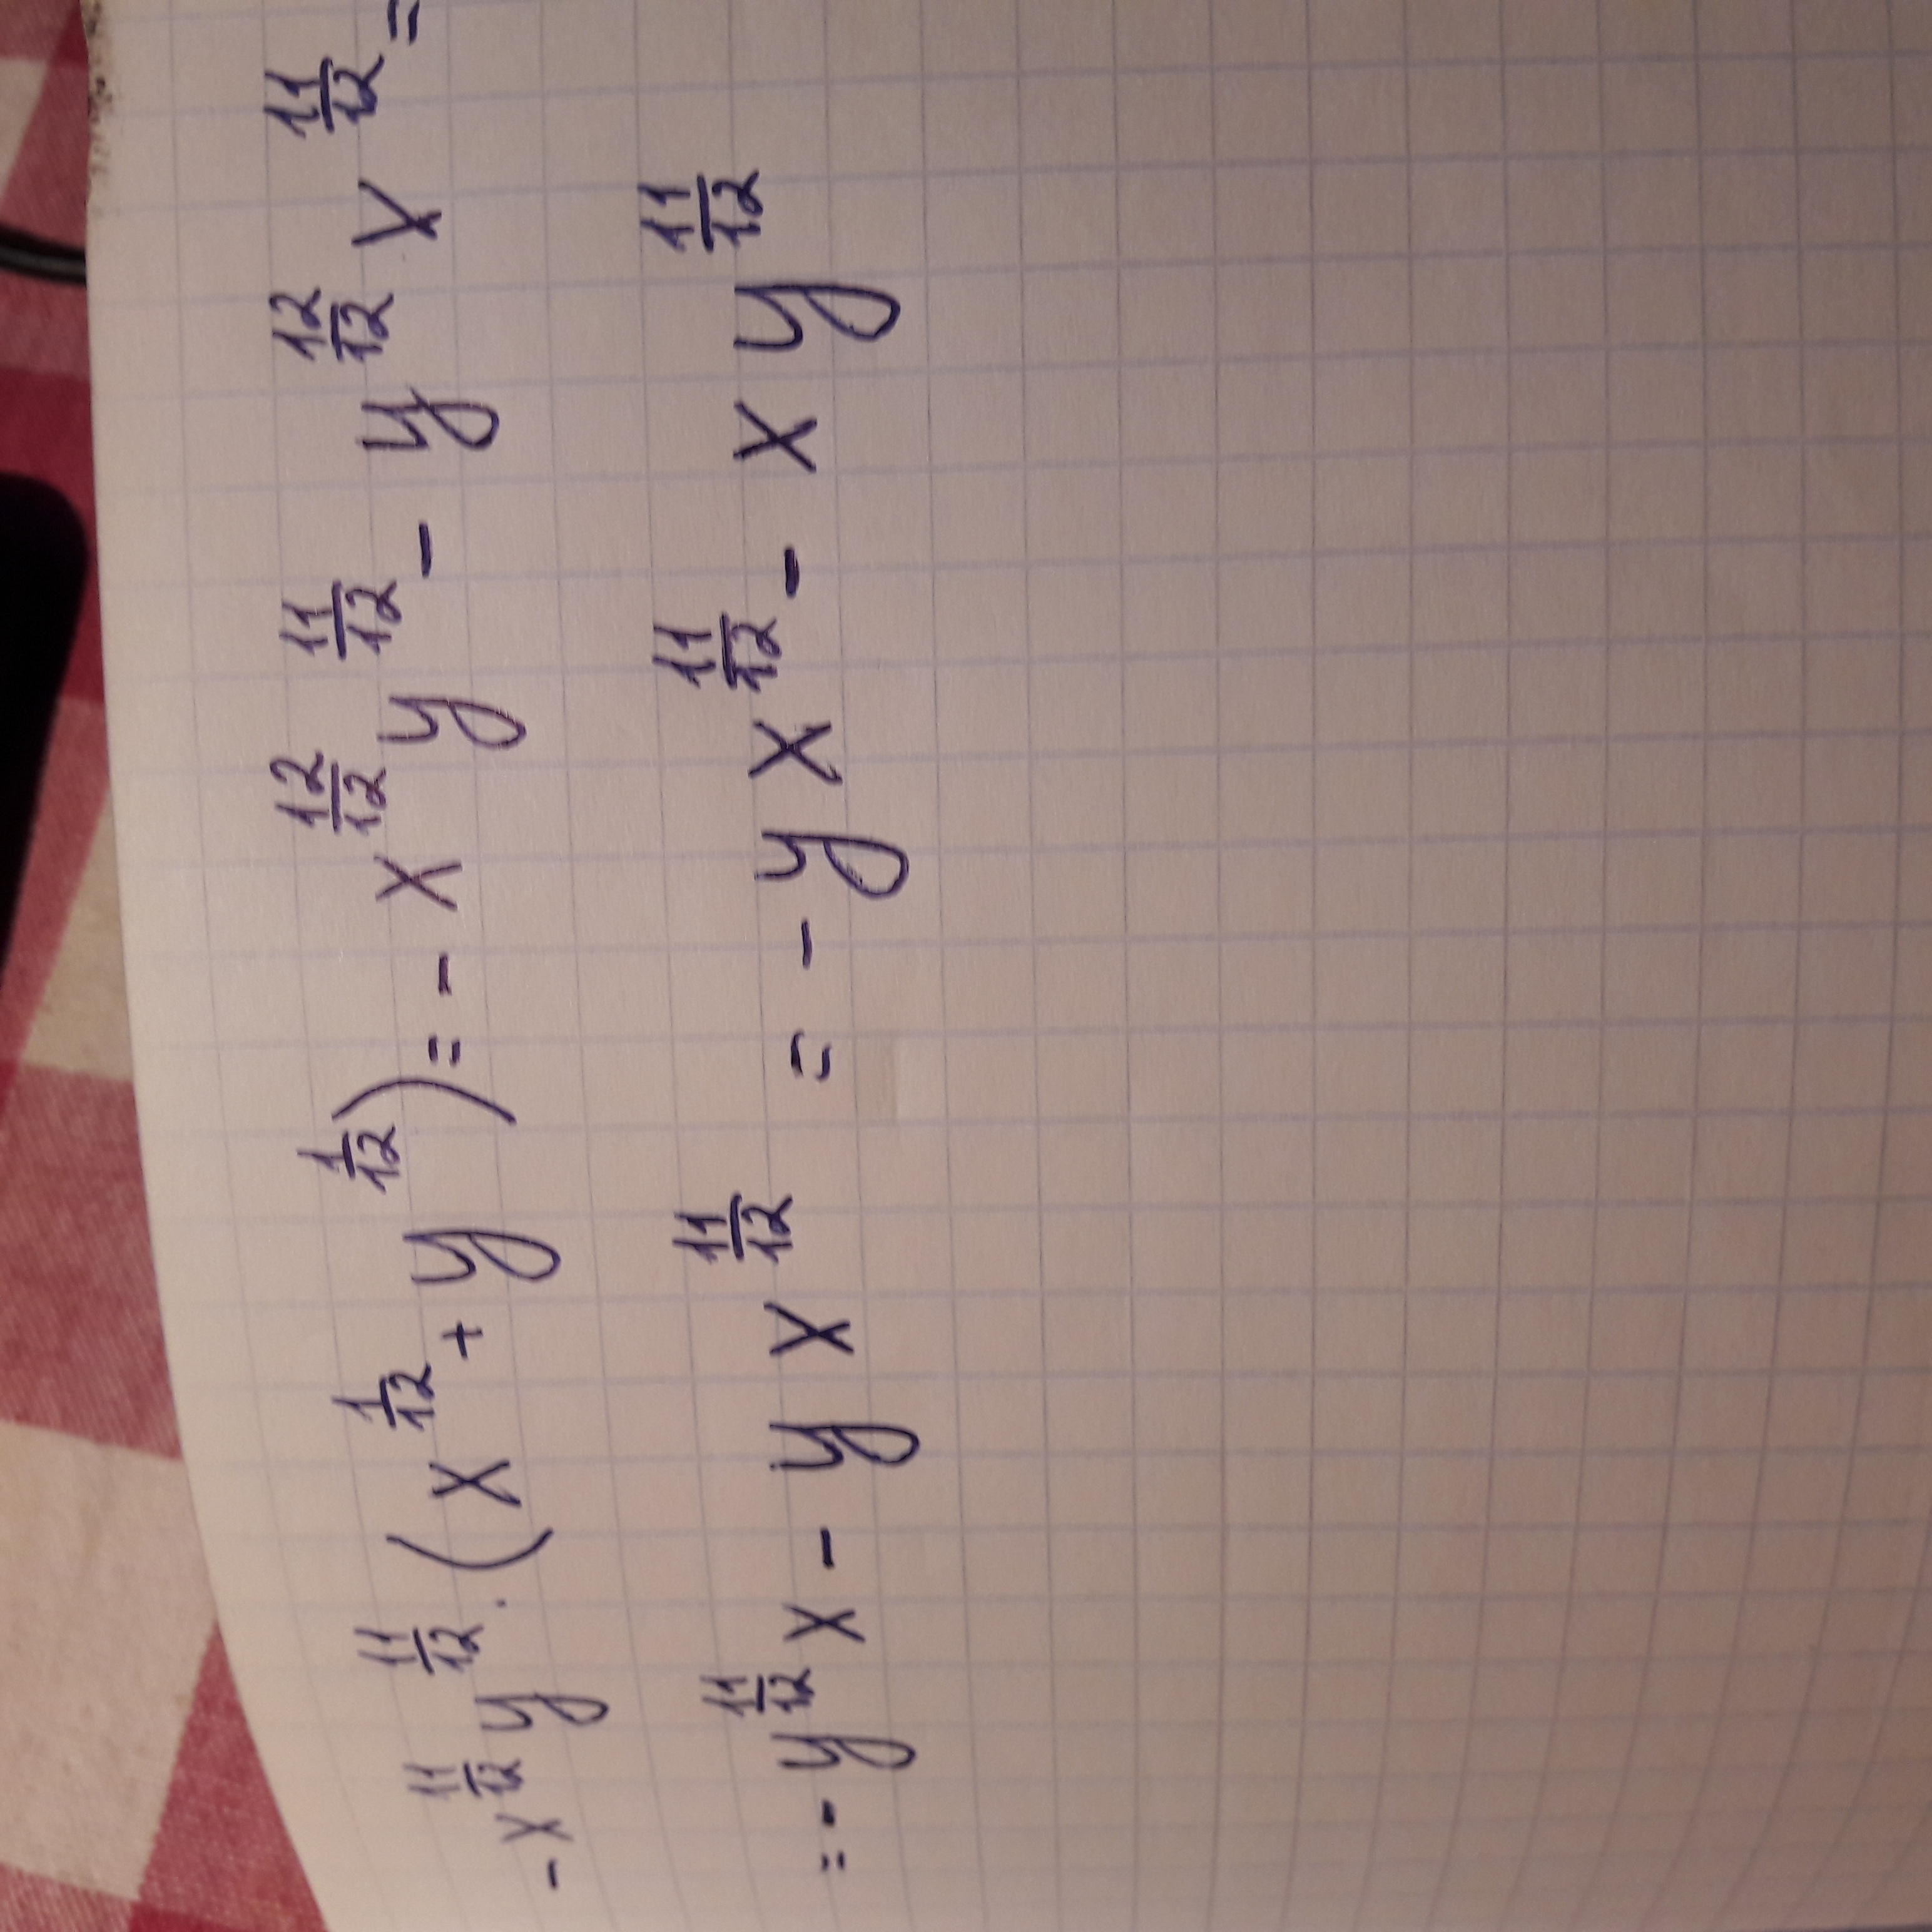 -x^{\frac{11}{12}}y^{\frac{11}{12}}·(x^{\frac{1}{12}}+y^{\frac{1}{12}})=-x^{\frac{12}{12}}y^{\frac{11}{12}}-y^{\frac{12}{12}}x^{\frac{11}{12}}=
=-y^{\frac{11}{12}}x-yx^{\frac{11}{12}}=-yx^{\frac{11}{12}}-xy^{\frac{11}{12}}